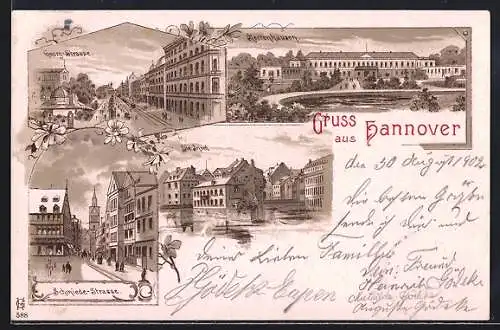 Georg-Strasse
Herrenhausen
Gruss
aus Hannover
Schmiede-Strasse.
den 30 August 1902
Die besten Grüße
sende ich Dir und
Deine lieben Familie
Dein Freund
Heinrich Gödeke
Auguste Gödeke
588